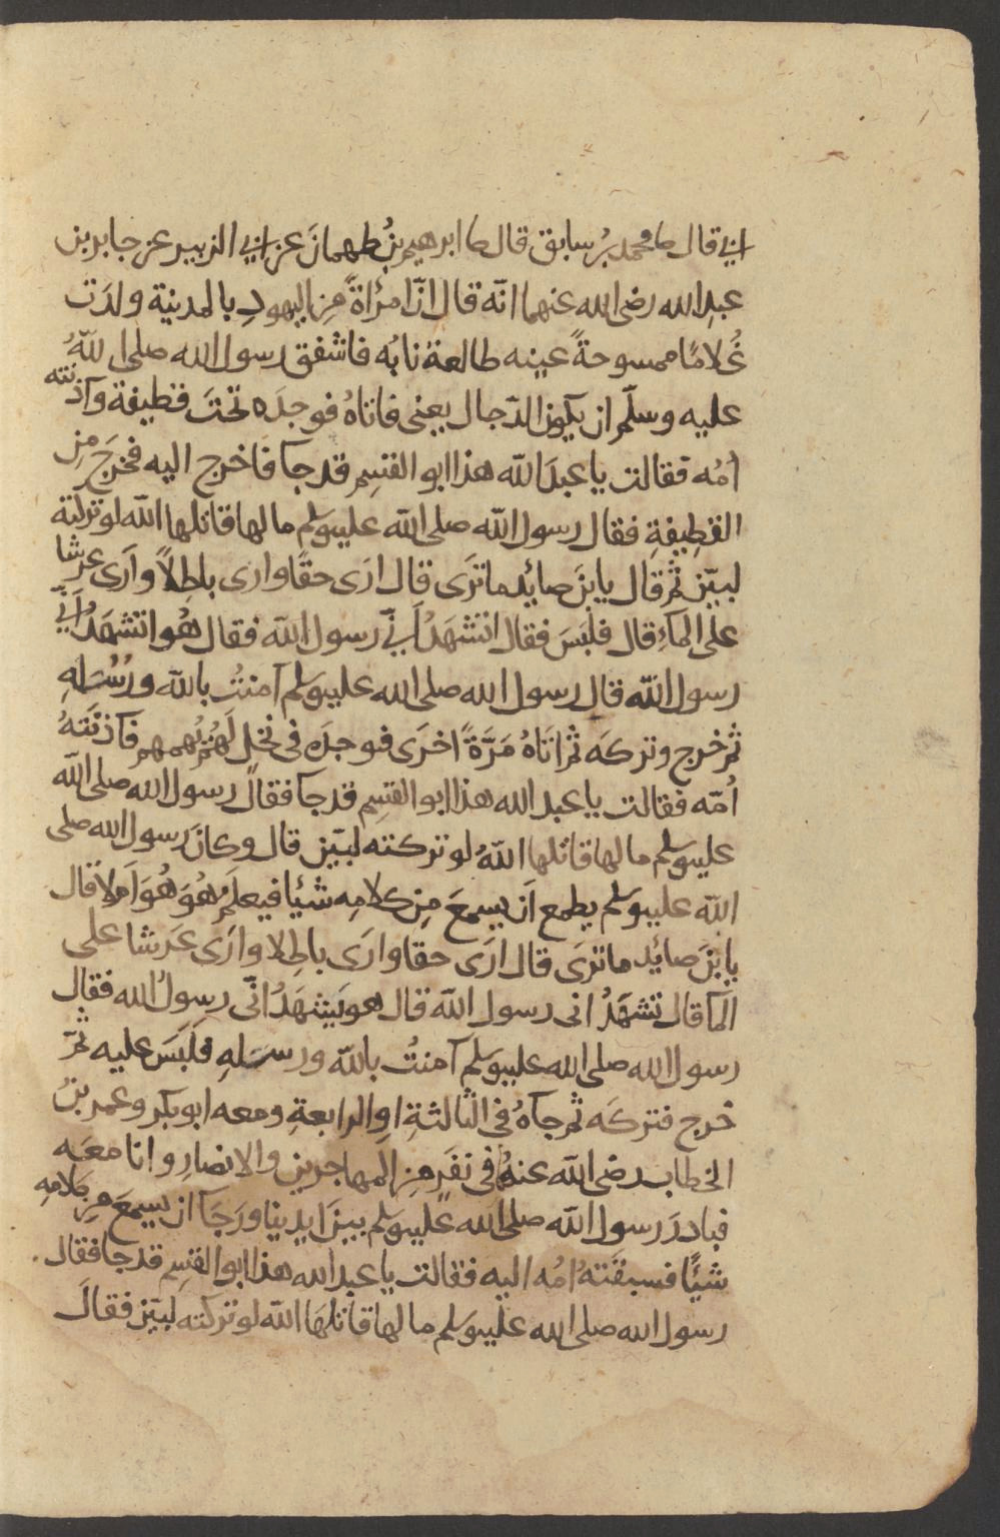 ابي قال نا محمد بن سابق قال نا ابرهيم بنُ طهمانَ عن ابي الزبير عن جابر بن
عبدِ الله رضى الله عنهما انّه قال انّ امرُاةً مِن اليهودِ بالمدينة ولدَت
غُلامًا ممسوحةً عينه طالعةُ نابُه فاشفق رسول الله صلى اللّهُ
عليه وسلّم ان يكون الدّجال يعنى فاتاهُ فوجدَه تحتَ قطيفة وآذنته
اُمُه فقالت يا عبدَ الله هذا ابو القسِم قد جآ فاخرج اليه فخرَج مِن
القطِيفةِ فقال رسول الله صلى الله عليه وسلم ما لها قاتلها الله لو تركته
لبيّن ثم قال يا بنَ صائِد ما ترَى قال ارَى حقًا وارى باطِلاً وآرَى عرشا
على المآءِ قال فلَبَسَ فقال اتشهَدُ اَنّي رسول الله فقال هُو اتشهَدُ اَنّي
رسول الله قال رسول الله صلى الله عليه وسلم آمنتُ بالله ورُسُلِهِ
ثم خرج وتركَه ثم اتَاهُ مَرَّةً اخرَى فوجدَه فى نخل لَهُم يُهمهم فآذنَتهُ
اُمّه فقالت يا عبد الله هذا ابو القسِم قد جآ فقال رسول الله صلى الله
عليه وسلم ما لها قاتلها اللهُ لو تركته لبيّن قال وكانَ رسول الله صلى
الله عليه وسلم يطمع اَن يسمعَ مِن كلامِه شيئا فيعلَمُ هُوَ هُوَ اَم لا قال
يا بنَ صائِد ما ترَى قال ارَى حقا وارَى باطِلا وارَى عَرشا على
المآ قال تشهَدُ انى رسول الله قال هو يَشهَدُ انّى رسولُ الله فقال
رسول الله صلى الله عليه وسلم آمنتُ بالله ورسُلِهِ فلَبَسَ عليه ثمّ
خرج فتركَه ثم جآهُ فى الثالثةِ اوِ الرابعةِ ومعه ابو بكر وعمر بنُ
الخطاب رضى الله عنهُما فى نفَرٍ مِن المهاجرين والانصارِ وانا معَه
فبادرَ رسول الله صلى الله عليه وسلم بينَ ايدينا ورَجَآ ان يسمعَ مِن كلامِه
شيئًا فسبقَتهُ اُمُه اليه فقالت يا عبد الله هذا ابو القسِم قد جآ فقال
رسول الله صلى الله عليه وسلم ما لها قاتلهَا الله لو تركته لبيّن فقال